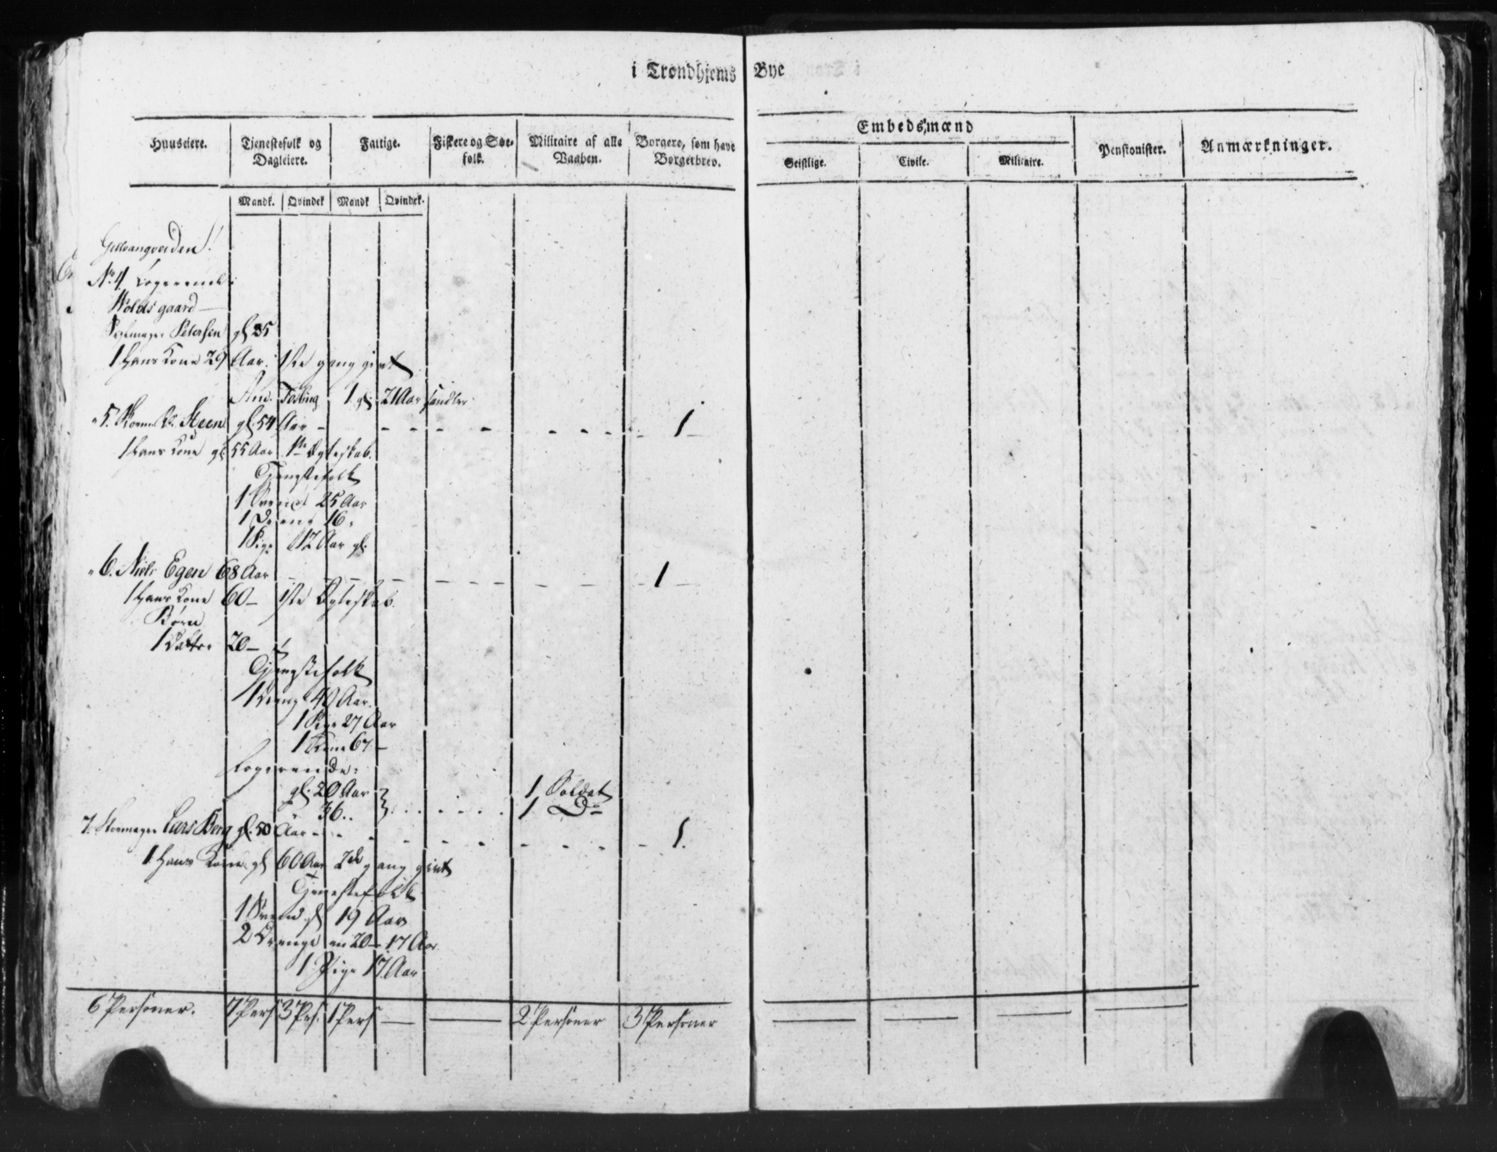 i Trondhjems Bye
Huuseiere. Tienestefolk og Dagleiere. Fattige. Fiskere og Søe-folk. Militaire af alle Vaaben. Borgere, som have Borgerbrev. Embedsmænd Geistlige. Civile. Militaire. Pensionister. Anmærkninger.
Mandk. Qvindek Mandk Qvindek.
No 4 Logerende
gl 35
1 Hans Kone 29 Aar. 1ste gang givt
1 gl. 21 Aar
" 5. Steen gl. 54 Aar - 1
1 Hans Kone gl 55 Aar 1te Egteskab.
Tjenestefolk
1 Svend 25 Aar
1 Dreng 16.
1 Pige 12 Aar gl:
" 6. Niels Egen 68 Aar 1
1 Hans Kone 60 - 1ste Egteskab.
Børn
1 Datter 20 -
Tjenestefolk
1 Dreng 40 Aar.
1 Pige 27 Aar
1 Kone 67 -
Logerende:
gl. 20 Aar 1 Soldat
36.. 1 Do
7. Lars Berg gl. 50 Aar - 1.
1 Hans Kone gl 60 Aar 2de gang givt
Tjenestefolk
1 Svend gl 19 Aar
2 Drenge en 20 - 17 Aar
1 Pige 17 Aar
6 Personer. 7 Pers 3 Prs. 1 Pers — — 2 Personer 3 Personer — — — — —